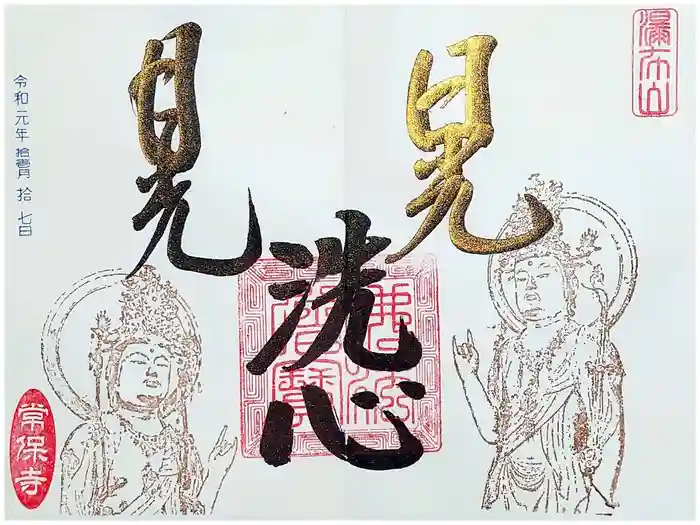 瀑布山
見
洗心
見
佛法僧寶
令和元年 拾壹月 拾七日
常保寺